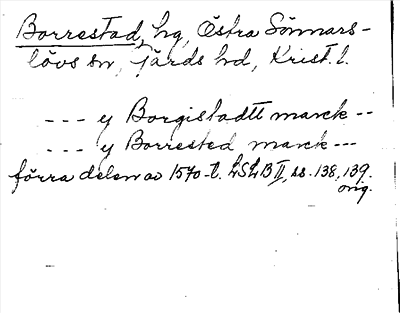 Borrestad, hg, Östra Sönnars-
lövs sn, Järds hd, Krist. l.
--- y Borgistadtt marck --
--- y Borrested marck ---
förra delen av 1570-t. LSLB II, ss. 138, 139.
orig.